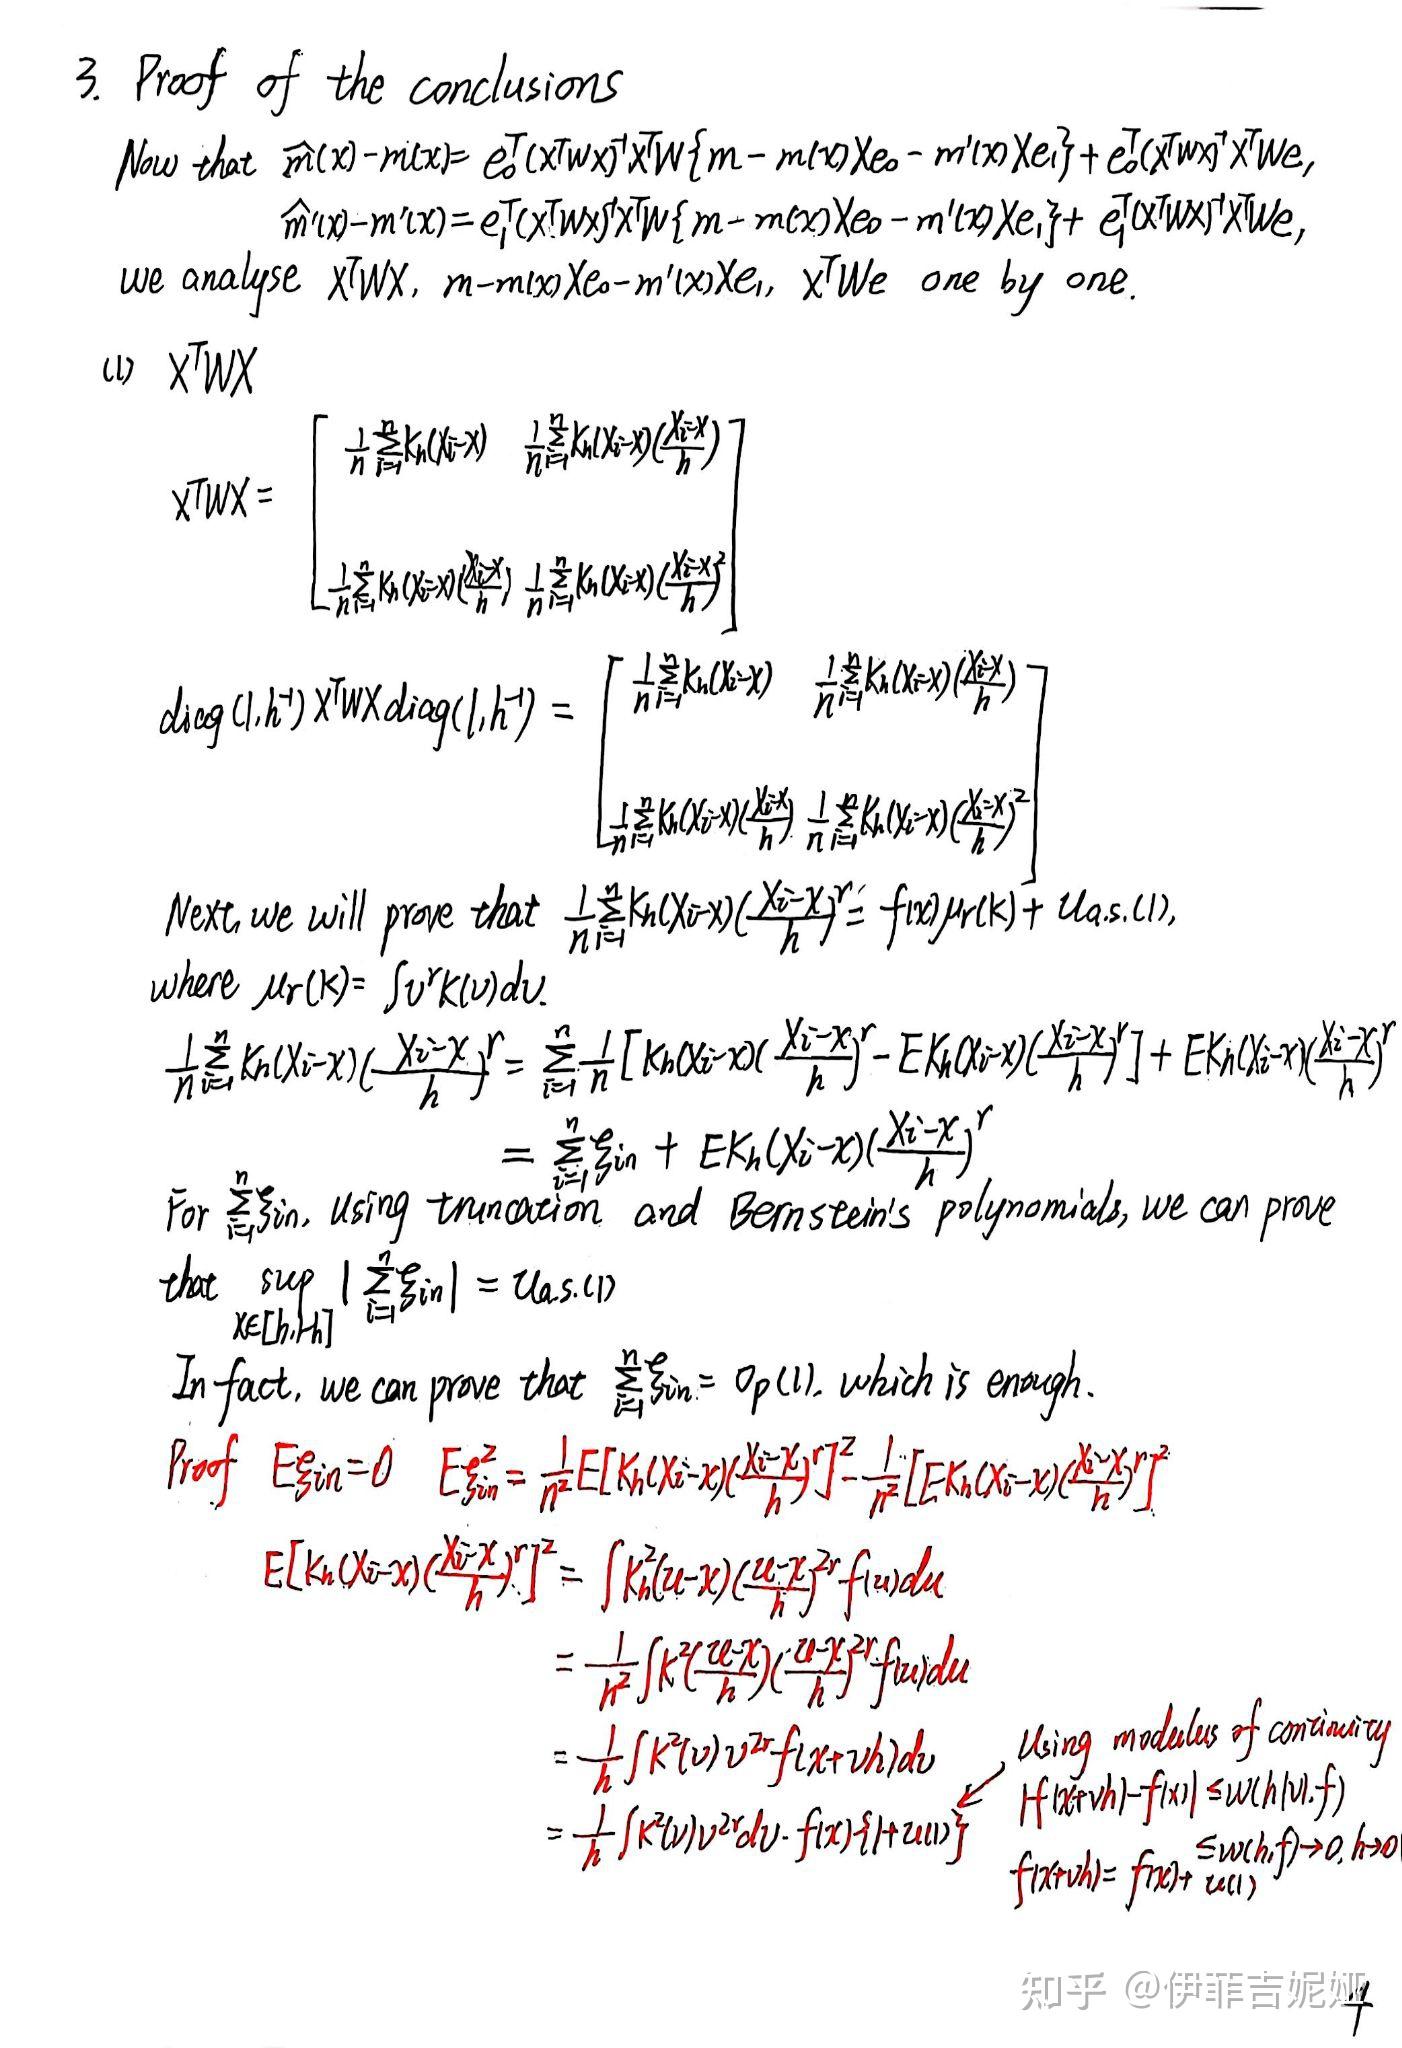 3. Proof of the conclusions
Now that m̂(x)-m(x)= e₀ᵀ(XᵀWX)⁻¹XᵀW{m - m(x)Xe₀ - m'(x)Xe₁}+e₀ᵀ(XᵀWX)⁻¹XᵀWe,
m̂'(x)-m'(x)=e₁ᵀ(XᵀWX)⁻¹XᵀW{m - m(x)Xe₀ - m'(x)Xe₁}+ e₁ᵀ(XᵀWX)⁻¹XᵀWe,
we analyse XᵀWX, m-m(x)Xe₀-m'(x)Xe₁, XᵀWe one by one.
(1) XᵀWX
XᵀWX = [ 1/n Σ_{i=1}^n K_h(X_i-x)   1/n Σ_{i=1}^n K_h(X_i-x)((X_i-x)/h)
1/n Σ_{i=1}^n K_h(X_i-x)((X_i-x)/h)   1/n Σ_{i=1}^n K_h(X_i-x)((X_i-x)/h)² ]
diag(1,h⁻¹)XᵀWXdiag(1,h⁻¹) = [ 1/n Σ_{i=1}^n K_h(X_i-x)   1/n Σ_{i=1}^n K_h(X_i-x)((X_i-x)/h)
1/n Σ_{i=1}^n K_h(X_i-x)((X_i-x)/h)   1/n Σ_{i=1}^n K_h(X_i-x)((X_i-x)/h)² ]
Next, we will prove that 1/n Σ_{i=1}^n K_h(X_i-x)((X_i-x)/h)^r = f(x)μ_r(K)+ U_{a.s.}(1),
where μ_r(K)= ∫v^r K(v)dv.
1/n Σ_{i=1}^n K_h(X_i-x)((X_i-x)/h)^r = Σ_{i=1}^n 1/n [K_h(X_i-x)((X_i-x)/h)^r - EK_h(X_i-x)((X_i-x)/h)^r] + EK_h(X_i-x)((X_i-x)/h)^r
= Σ_{i=1}^n ξ_in + EK_h(X_i-x)((X_i-x)/h)^r
For Σ_{i=1}^n ξ_in, using truncation and Bernstein's polynomials, we can prove
that sup_{x∈[h,1-h]} |Σ_{i=1}^n ξ_in| = U_{a.s.}(1)
In fact, we can prove that Σ_{i=1}^n ξ_in = o_p(1), which is enough.
Proof Eξ_in=0 Eξ_in² = 1/n² E[K_h(X_i-x)((X_i-x)/h)^r]² - 1/n² [EK_h(X_i-x)((X_i-x)/h)^r]²
E[K_h(X_i-x)((X_i-x)/h)^r]² = ∫K_h²(u-x)((u-x)/h)^{2r} f(u)du
= 1/h² ∫K²((u-x)/h)((u-x)/h)^{2r} f(u)du
= 1/h ∫K²(v)v^{2r} f(x+vh)dv
= 1/h ∫K²(v)v^{2r}dv · f(x){1+u(1)}
Using modulus of continuity
|f(x+vh)-f(x)| ≤w(h|v|,f)
≤w(h,f)→0, h→0
f(x+vh)= f(x)+u(1)
知乎 @伊菲吉妮娅